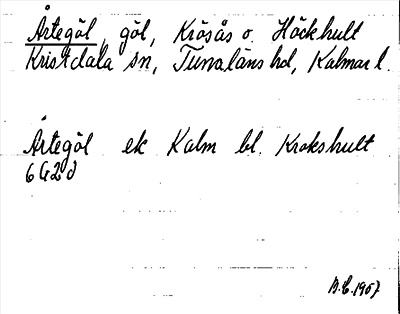 Årtegöl, göl, Krösås o. Höckhult
Kristdala sn, Tunaläns hd, Kalmar l.
Årtegöl ek Kalm bl. Krokshult
6G2d
B.E. 1967